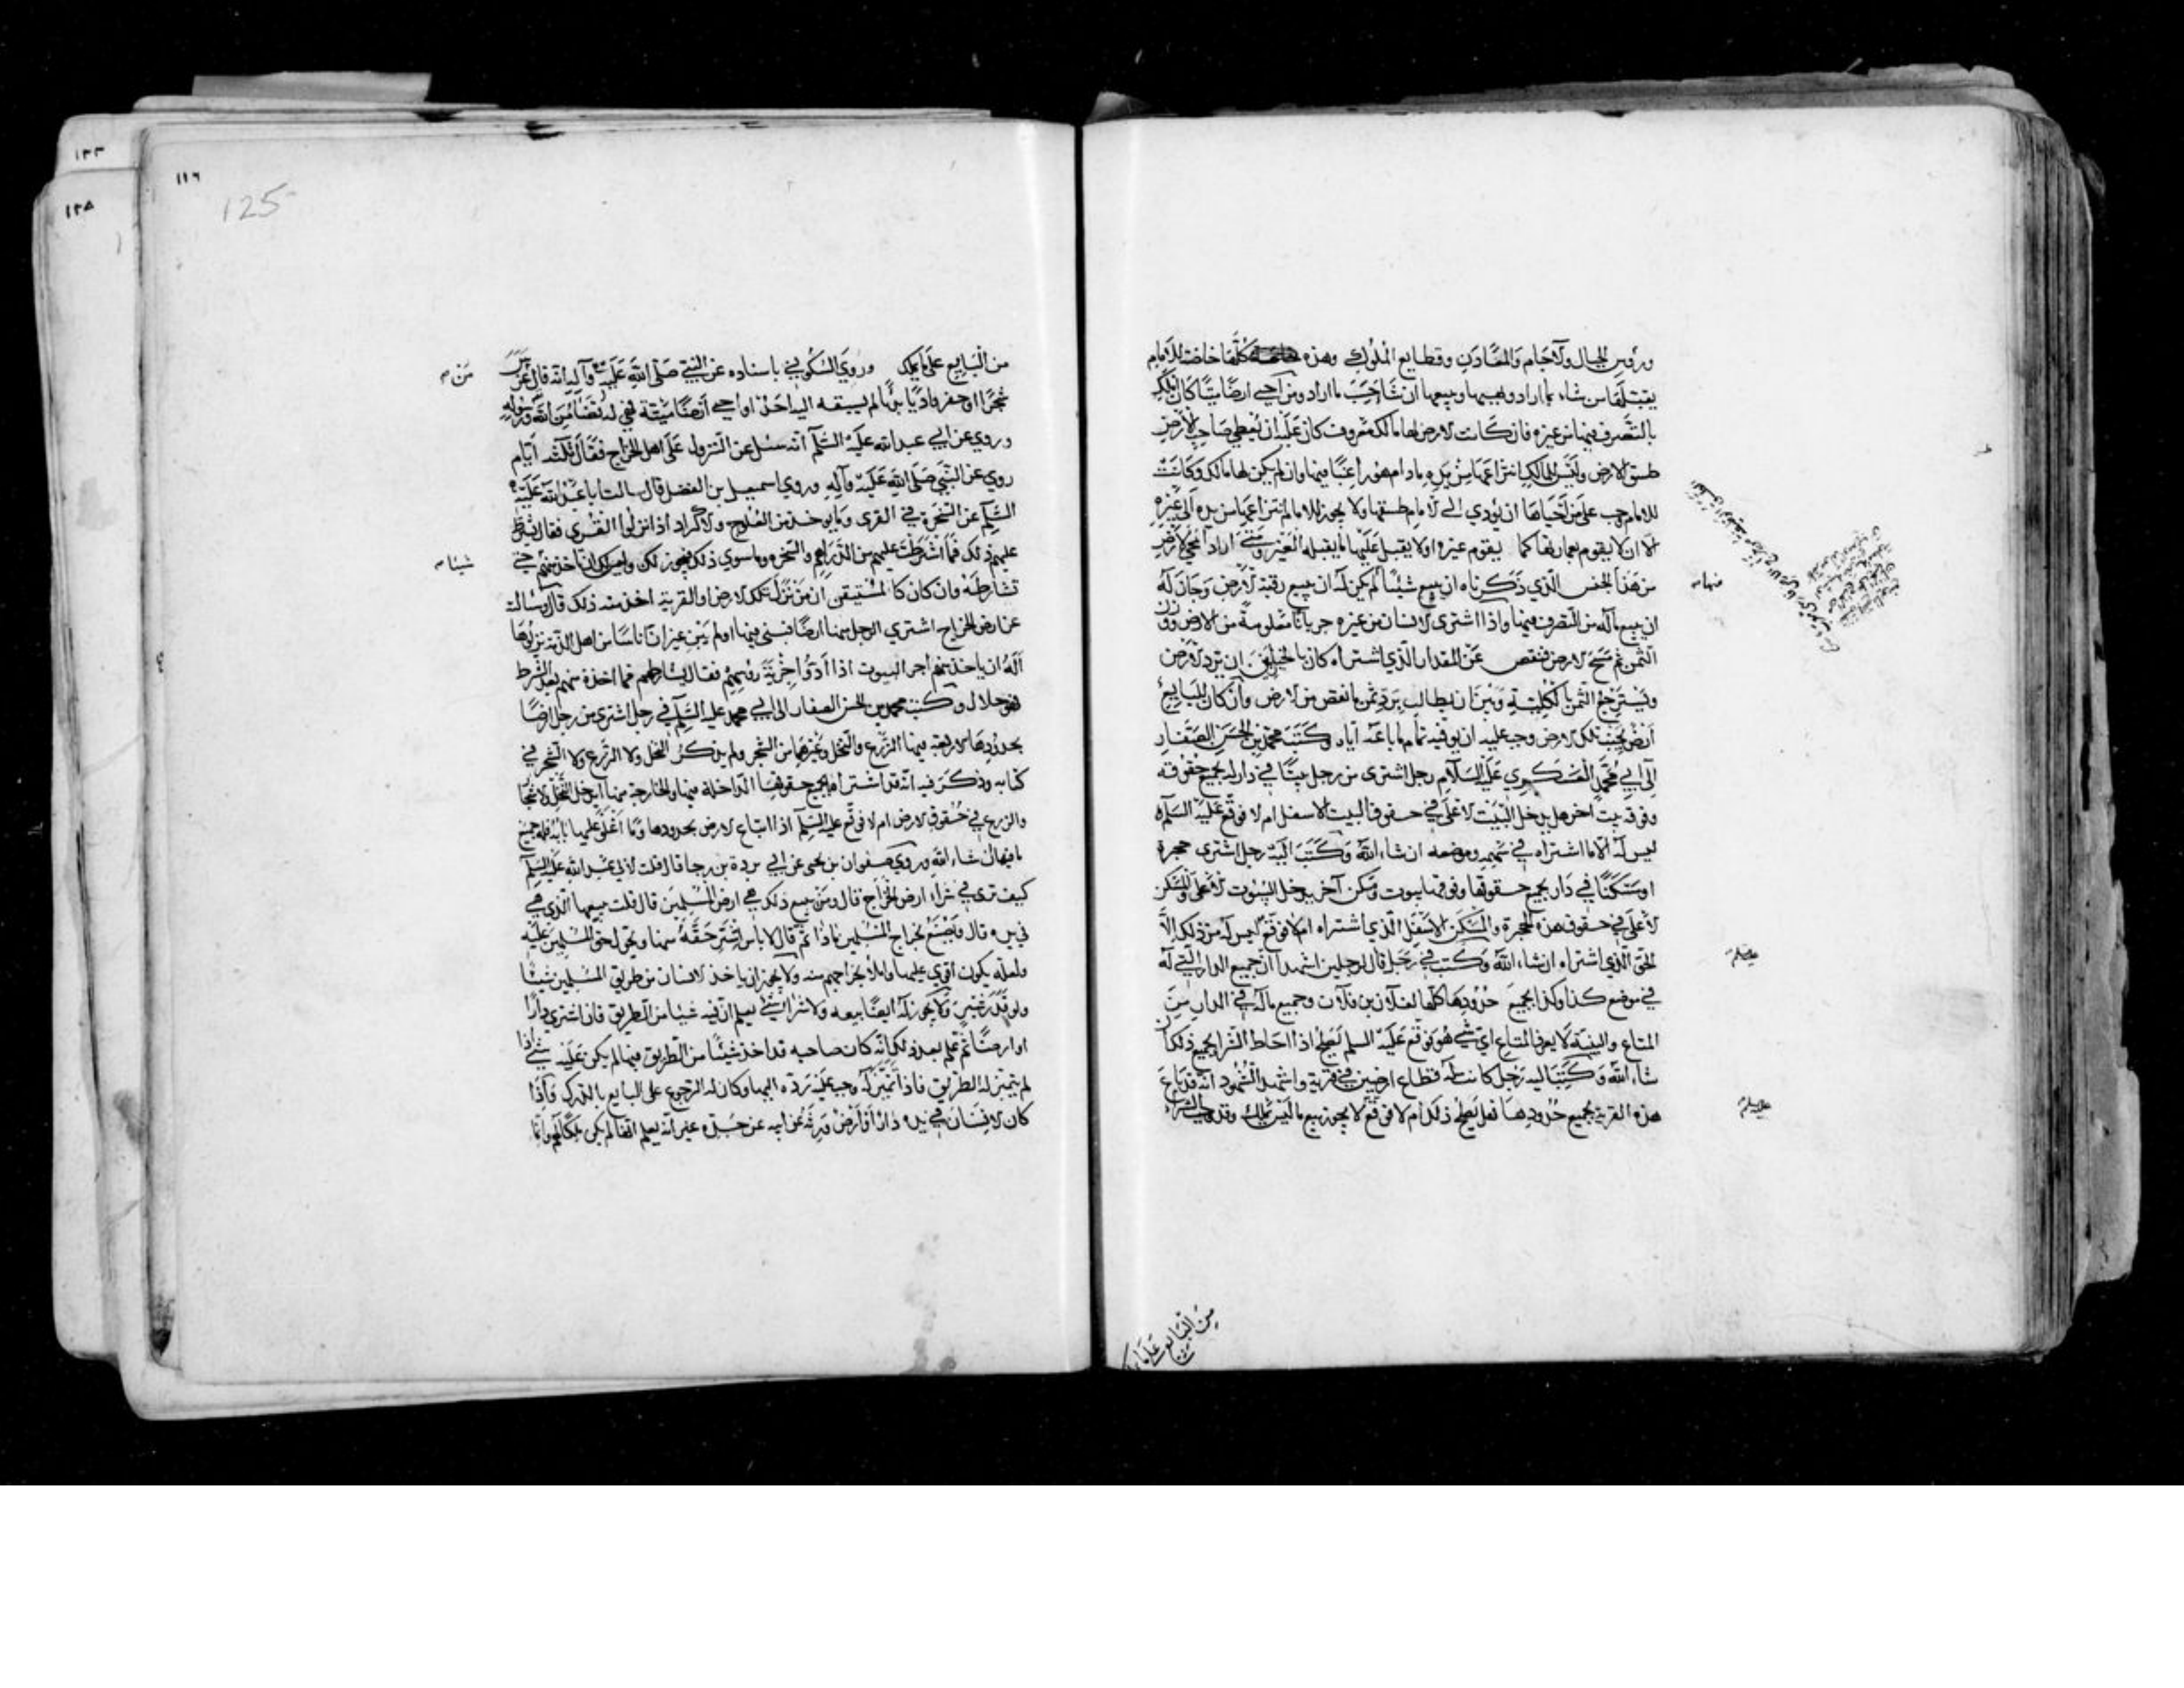 ورؤس الجبال والآجام والمعادن وقطايع الملوك وهذه كلها خاصة للامام
يقبلها من شاء بما اراد ويهبها ويبيعها ان شاء حسب ما اراد ومن احيى ارضا ميتا كان املك
بالتصرف فيها من غيره فان كانت الارض لها مالك معروف كان عليه ان يعطي صاحب الارض
طسق الارض وليس للمالك انتزاعها من يده ما دام هو راغبا فيها وان لم يكن لها مالك وكانت
للامام وجب على من احياها ان يؤدي الى الامام طسقها ولا يجوز للامام انتزاعها من يده الى غيره
الا ان لا يقوم بعمارتها كما يقوم غيره او لا يقبل عليها ما يقبله الغير ومتى اراد المحيي لارض
من هذا الجنس الذي ذكرناه ان يبيع شيئا لم يكن له ان يبيع رقبة الارض وجاز له
ان يبيع ماله من التصرف فيها واذا اشترى الانسان من غيره جربانا معلومة من الارض ووزن
الثمن ثم مسح الارض فنقص عن المقدار الذي اشتراه كان بالخيار بين ان يرد الارض
ويسترجع الثمن بالكلية وبين ان يطالب برد ثمن ما نقص من الارض وان كان للبايع
ارض بجنب تلك الارض وجب عليه ان يوفيه تمام ما باعه اياه وكتب محمد بن الحسن الصفار
الى ابي محمد العسكري عليه السلام رجل اشترى من رجل بيتا في دار له بجميع حقوقه
وفوقه بيت آخر هل يدخل البيت الاعلى في حقوق البيت الاسفل ام لا فوقع عليه السلم
ليس له الا ما اشتراه في سهمه وموضعه ان شاء الله وكتب اليه رجل اشترى حجرة
او مسكنا في دار بجميع حقوقها وفوقها بيوت ومسكن آخر يدخل البيوت الاعلى والمسكن
الاعلى في حقوق هذه الحجرة والمسكن الاسفل الذي اشتراه ام لا فوقع ليس له من ذلك الا
الحق الذي اشتراه ان شاء الله وكتب في رجل قال لرجلين اشهدا ان جميع الدار التي له
في موضع كذا وكذا بجميع حدودها كلها لفلان بن فلان وجميع ماله في الدار من
المتاع والبينة لا يعرف المتاع اي شي هو فوقع عليه السلم يصلح اذا احاط الشرا بجميع ذلك ان
شاء الله وكتب اليه رجل كانت له قطاع ارضين في قرية واشهد الشهود انه قد باع
هذه القرية بجميع حدودها فهل يصلح ذلك ام لا فوقع لا يجوز بيع ما ليس يملك وقد وجب الشراء
منها
من البايع على ما
١١٦
125
١٢٣
١٢٨
من البايع على ما يملك وروى السكوني باسناده عن النبي صلى الله عليه وآله انه قال من غرس
شجرا او حفر واديا بديا لم يسبقه اليه احد او احيى ارضا ميتة فهي له قضاء من الله ورسوله
وروي عن ابي عبد الله عليه السلم انه سئل عن النزول على اهل الخراج فقال ثلثة ايام
روي عن النبي صلى الله عليه وآله وروى اسمعيل بن الفضل قال سالت ابا عبد الله عليه
السلم عن السخرة في القرى وما يوخذ من العلوج والاكراد اذا نزلوا القرى فقال اشترط
عليهم ذلك فما اشترطت عليهم من الدراهم والسخره وما سوى ذلك فيجوز لك وليس لك ان تاخذ منهم حتى
تشارطهم وان كان كالمستيقن ان من نزل تلك الارض او القرية اخذ منه ذلك قال وسالته
عن ارض الخراج اشترى الرجل منها ارضا فبنى فيها او لم يبن غير ان اناسا من اهل الذمة نزلوها
اله ان ياخذ منهم اجر البيوت اذا ادوا جزية رؤسهم فقال يشارطهم فما اخذه منهم بعد الشرط
فهو حلال وكتب محمد بن الحسن الصفار الى ابي محمد عليه السلم في رجل اشترى من رجل ارضا
بحدودها الاربعة فيها الزرع والنخل وغيرهما من الشجر ولم يذكر النخل ولا الزرع ولا الشجر في
كتابه وذكر فيه انه قد اشتراها بجميع حقوقها الداخلة فيها والخارجة منها ايدخل النخل والاشجار
والزرع في حقوق الارض ام لا فوقع عليه السلم اذا ابتاع الارض بحدودها وما اغلق عليه بابها فله جميع
ما فيها ان شاء الله وروى صفوان بن يحيى عن ابي بردة بن رجا قال قلت لابي عبد الله عليه السلم
كيف ترى في شراء ارض الخراج قال ومن يبيع ذلك هي ارض المسلمين قال قلت يبيعها الذي هي
في يده قال ويصنع بخراج المسلمين ماذا ثم قال لا باس اشتر حقه منها ويحول حق المسلمين عليه
ولعله يكون اقوى عليها واملا بخراجهم منه ولا يجوز ان ياخذ الانسان من طريق المسلمين شيئا
ولو قدر شبر ولا يجوز له ايضا بيعه ولا شراء شي يعلم ان فيه شيئا من الطريق فان اشترى دارا
او ارضا ثم علم بعد ذلك انه كان صاحبه قد اخذ شيئا من الطريق فيها لم يكن عليه شي اذا
لم يتميز له الطريق فاذا تميز له وجب عليه رده اليها وكان له الرجوع على البايع بالدرك واذا
كان لانسان في يده دار او ارض ورثها عن ابيه عن جده غير انه يعلم انها لم يكن ملكا لهم وانما
من
شيئا